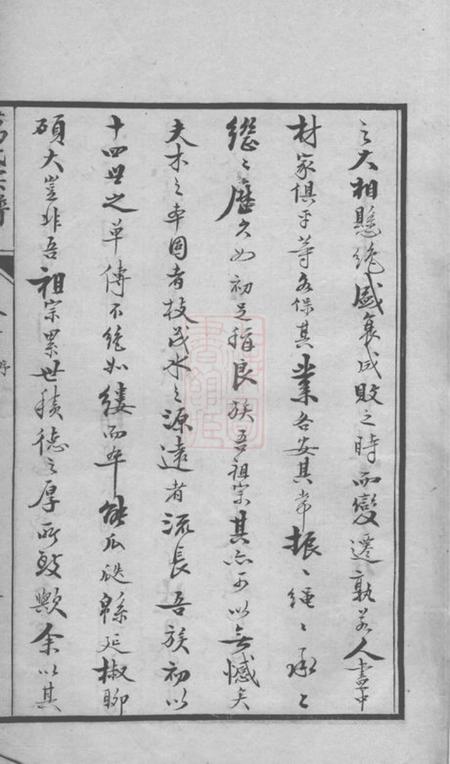 之大相懸絶盛衰成敗之時而變遷孰若人書中
材家俱平等各保其業各安其常振〻繩〻承〻
繼〻歷久如初足稱良族吾祖宗其亦可以無憾矣
夫木之本固者枝茂水之源遠者流長吾族初以
十四世之單傳不絶如縷而卒能瓜瓞緜延椒聊
碩大豈非吾祖宗累世積德之厚所致歟余以其